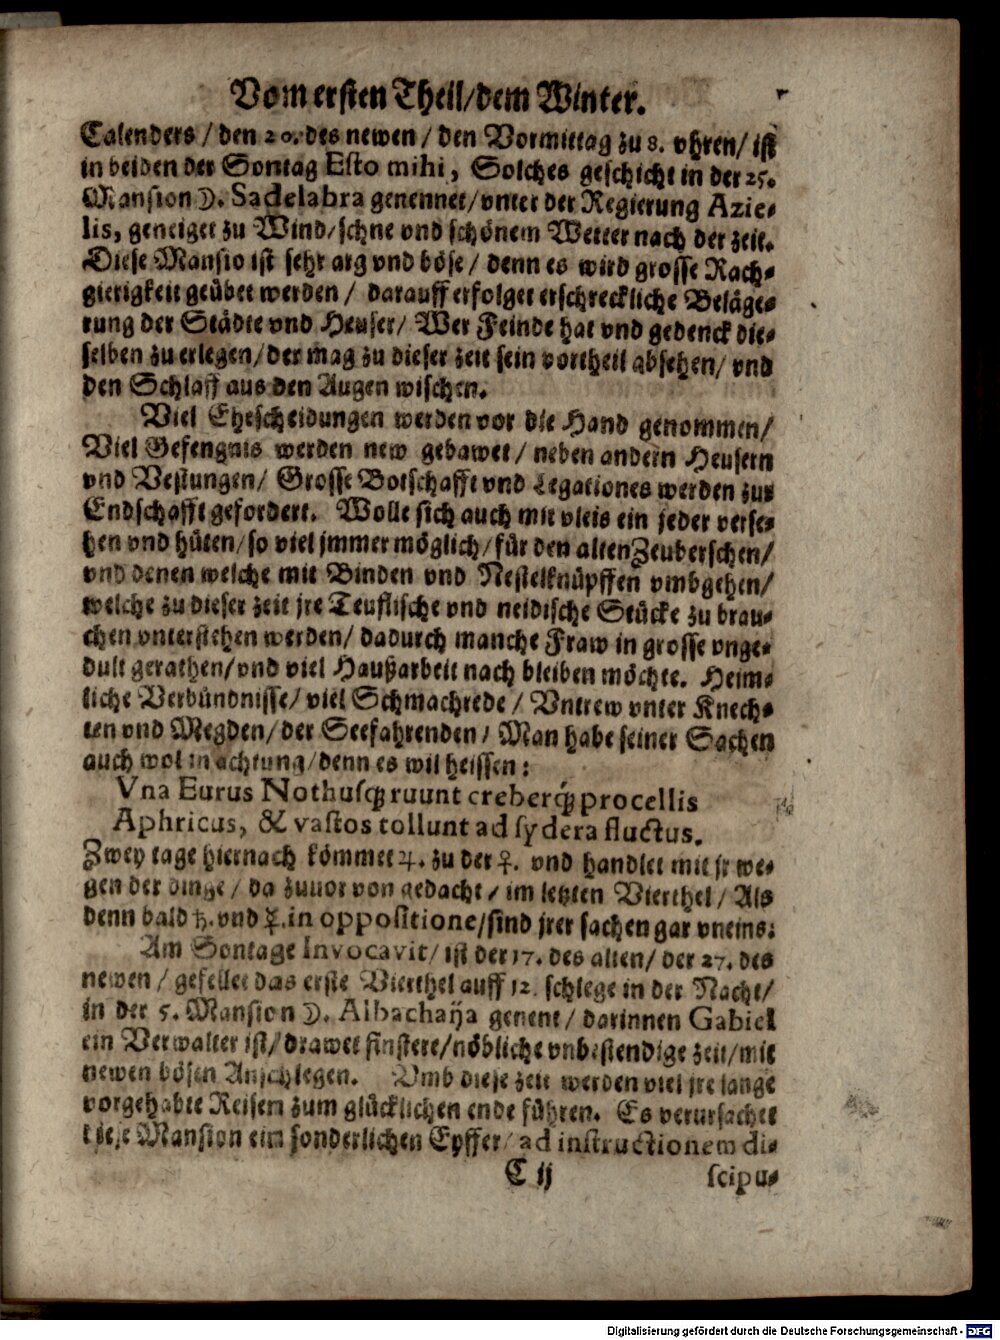 Vom ersten Theil/dem Winter.
Calenders / den 20. des newen / den Vormittag zu 8. vhren / ist
in beiden der Sontag Esto mihi, Solches geschicht in der 25.
Mansion ☽. Sadelabra genennet/vnter der Regierung Azie-
lis, geneiget zu Wind/schne vnd schönem Wetter nach der zeit.
Diese Mansio ist sehr arg vnd böse / denn es wird grosse Rach-
gierigkeit geübet werden / darauff erfolget erschreckliche Beläge-
rung der Städte vnd Heuser/ Wer Feinde hat vnd gedenck die-
selben zu erlegen/der mag zu dieser zeit sein vortheil absehen/ vnd
den Schlaff aus den Augen wischen.
Viel Ehescheidungen werden vor die Hand genommen/
Viel Gefengnis werden new gebawet / neben andern Heusern
vnd Vestungen/ Grosse Botschafft vnd Legationes werden zur
Endschafft gefordert. Wolle sich auch mit vleis ein jeder verse-
hen vnd hüten/so viel jmmer möglich/für den alten Zeuberschen/
vnd denen welche mit Binden vnd Nestelknüpffen vmbgehen/
welche zu dieser zeit jre Teuflische vnd neidische Stücke zu brau-
chen vnterstehen werden/ dadurch manche Fraw in grosse vnge-
dult gerathen/vnd viel Haußarbeit nach bleiben möchte. Heim-
liche Verbündnisse/ viel Schmachrede / Vntrew vnter Knech-
ten vnd Megden/ der Seefahrenden / Man habe seiner Sachen
auch wol in achtung/denn es wil heissen:
Vna Eurus Nothusq; ruunt creberq; procellis
Aphricus, & vastos tollunt ad sydera fluctus.
Zwey tage hiernach kömmet ♃. zu der ♀. vnd handlet mit jr we-
gen der dinge / da zuuor von gedacht / im letzten Vierthel / Als
denn bald ♄. vnd ☿. in oppositione/sind jrer sachen gar vneins.
Am Sontage Invocavit/ ist der 17. des alten/ der 27. des
newen / gefellet das erste Vierthel auff 12. schlege in der Nacht/
in der 5. Mansion ☽. Albachaÿa genent / darinnen Gabiel
ein Verwalter ist/ drawet finstere/nöbliche vnbestendige zeit/mit
newen bösen Anschlegen. Vmb diese zeit werden viel jre lange
vorgehabte Reisen zum glücklichen ende führen. Es verursachet
diese Mansion ein sonderlichen Eyffer/ ad instructionem di-
C ij scipu-
Digitalisierung gefördert durch die Deutsche Forschungsgemeinschaft - DFG